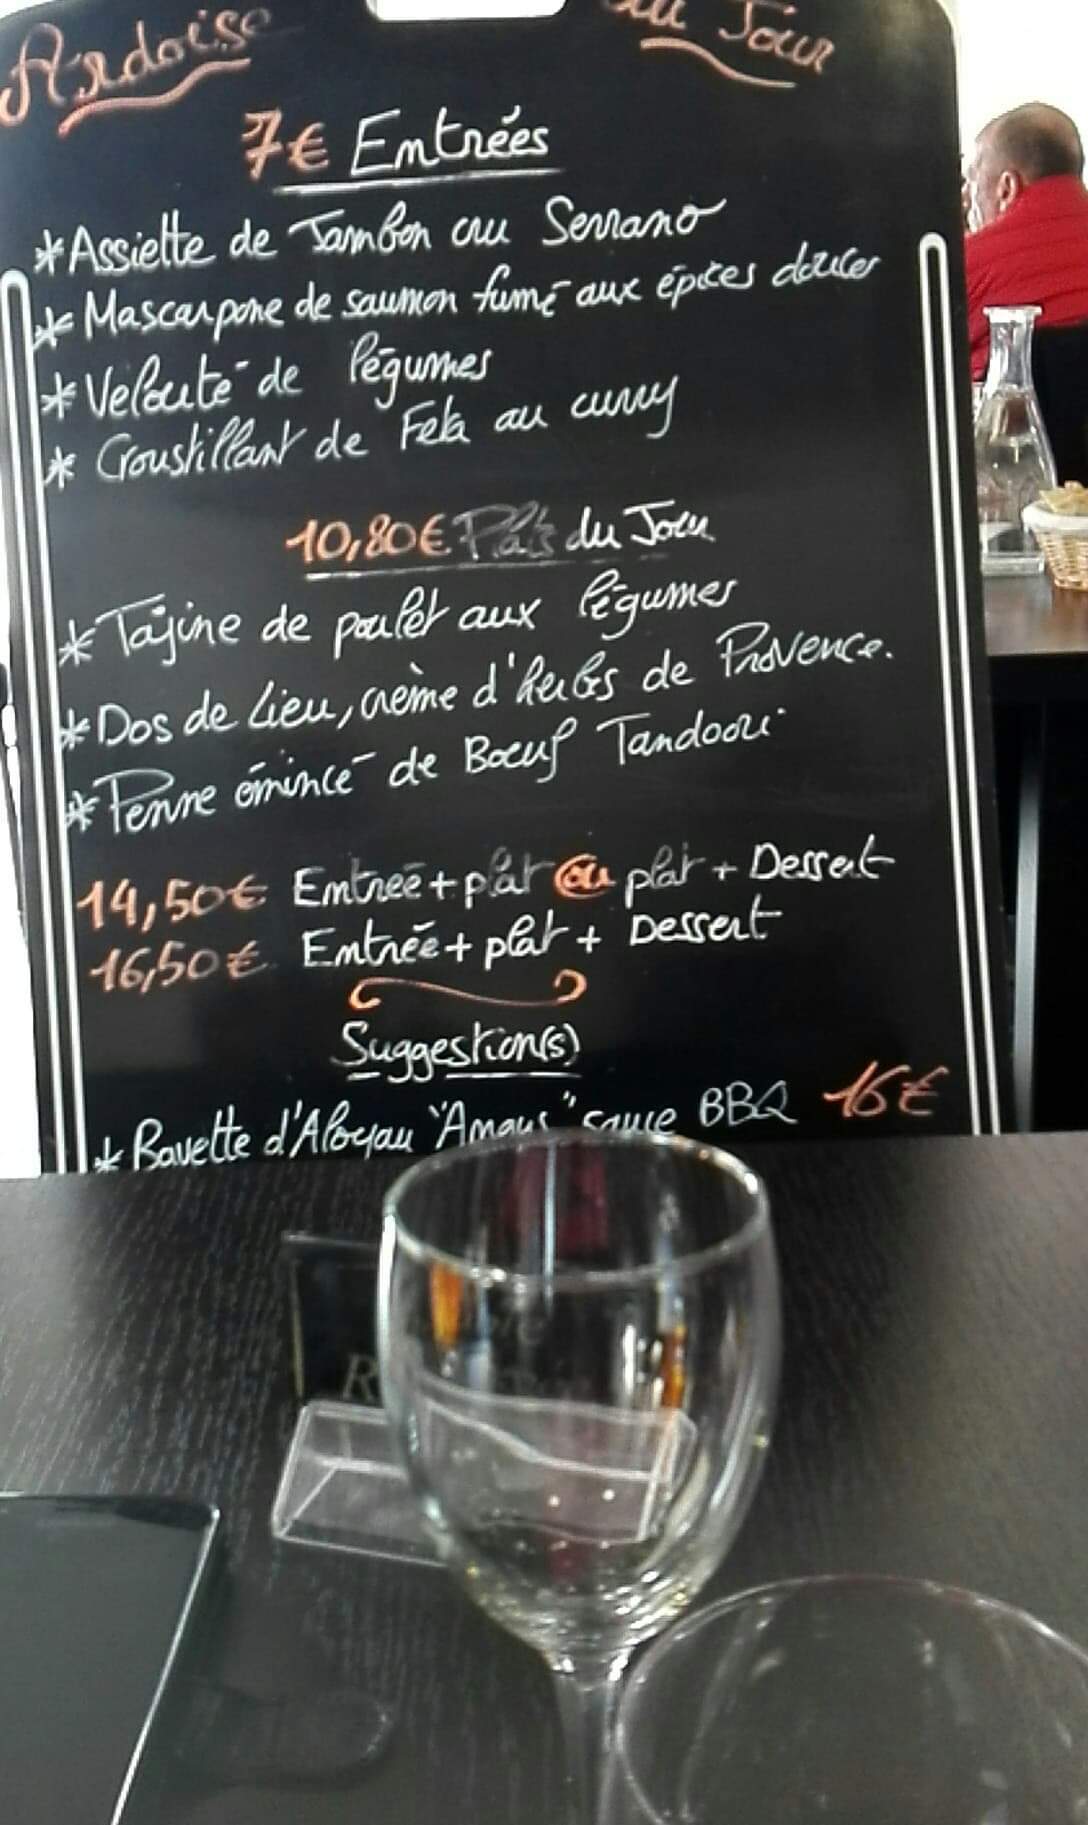 Ardoise du Jour
7€ Entrées
*Assiette de Jambon cru Serrano
*Mascarpone de saumon fumé aux épices douces
*Velouté de légumes
* Croustillant de Feta au curry
10,80€ Plats du Jour
*Tajine de poulet aux légumes
*Dos de Lieu, crème d'herbes de Provence.
*Penne émincé de Boeuf Tandoori
14,50€ Entrée + plat ou plat + Dessert
16,50€ Entrée + plat + Dessert
Suggestion(s)
* Bavette d'Aloyau "Angus" sauce BBQ 16€